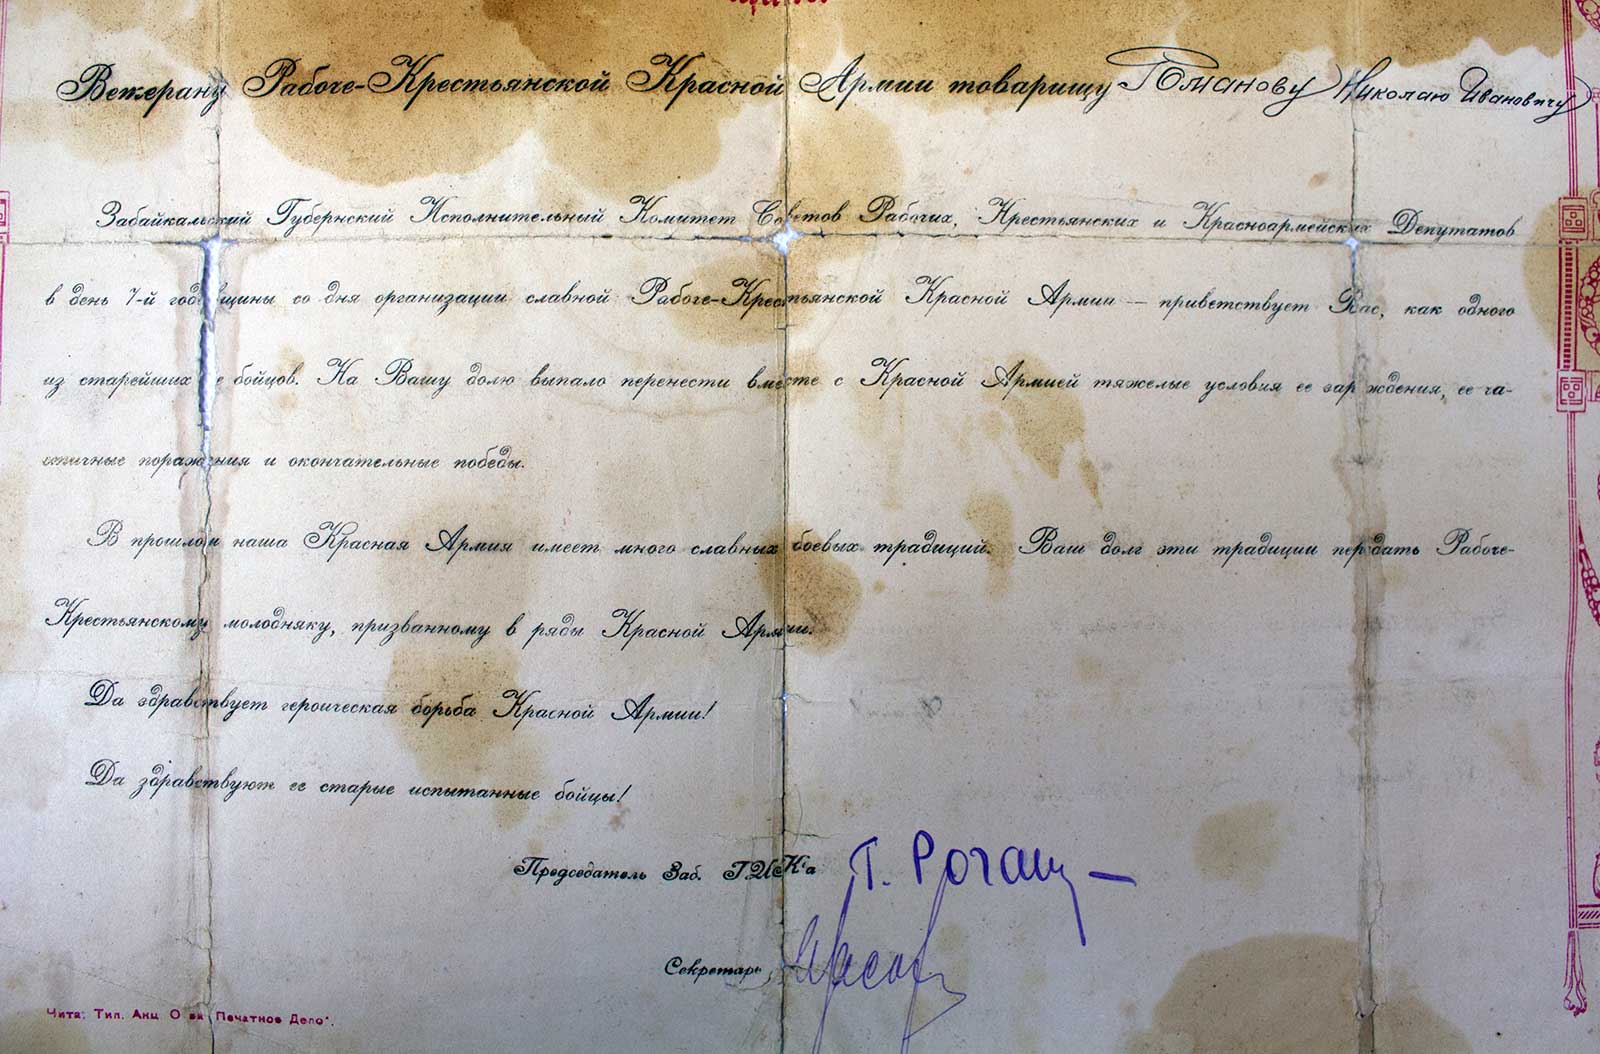 Ветерану Рабоче-Крестьянской Красной Армии товарищу Николаю Ивановичу
Забайкальский Губернский Исполнительный Комитет Советов Рабочих, Крестьянских и Красноармейских Депутатов
в день 7-й годовщины со дня организации славной Рабоче-Крестьянской Красной Армии — приветствует Вас, как одного
из старейших ее бойцов. На Вашу долю выпало перенести вместе с Красной Армией тяжелые условия ее зарождения, ее ча-
стичные поражения и окончательные победы.
В прошлом наша Красная Армия имеет много славных боевых традиций. Ваш долг эти традиции передать Рабоче-
Крестьянскому молодняку, призванному в ряды Красной Армии.
Да здравствует героическая борьба Красной Армии!
Да здравствуют ее старые испытанные бойцы!
Председатель Заб. ГИК'а
Секретарь
Чита: Тип. Акц О-ва "Печатное Дело".